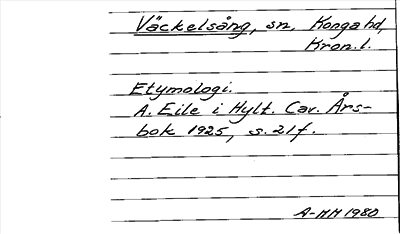 Väckelsång, sn, Konga hd,
Kron. l.
Etymologi.
A. Eile i Hylt. Cav. Års-
bok 1925, s. 21 f.
A-HH 1980